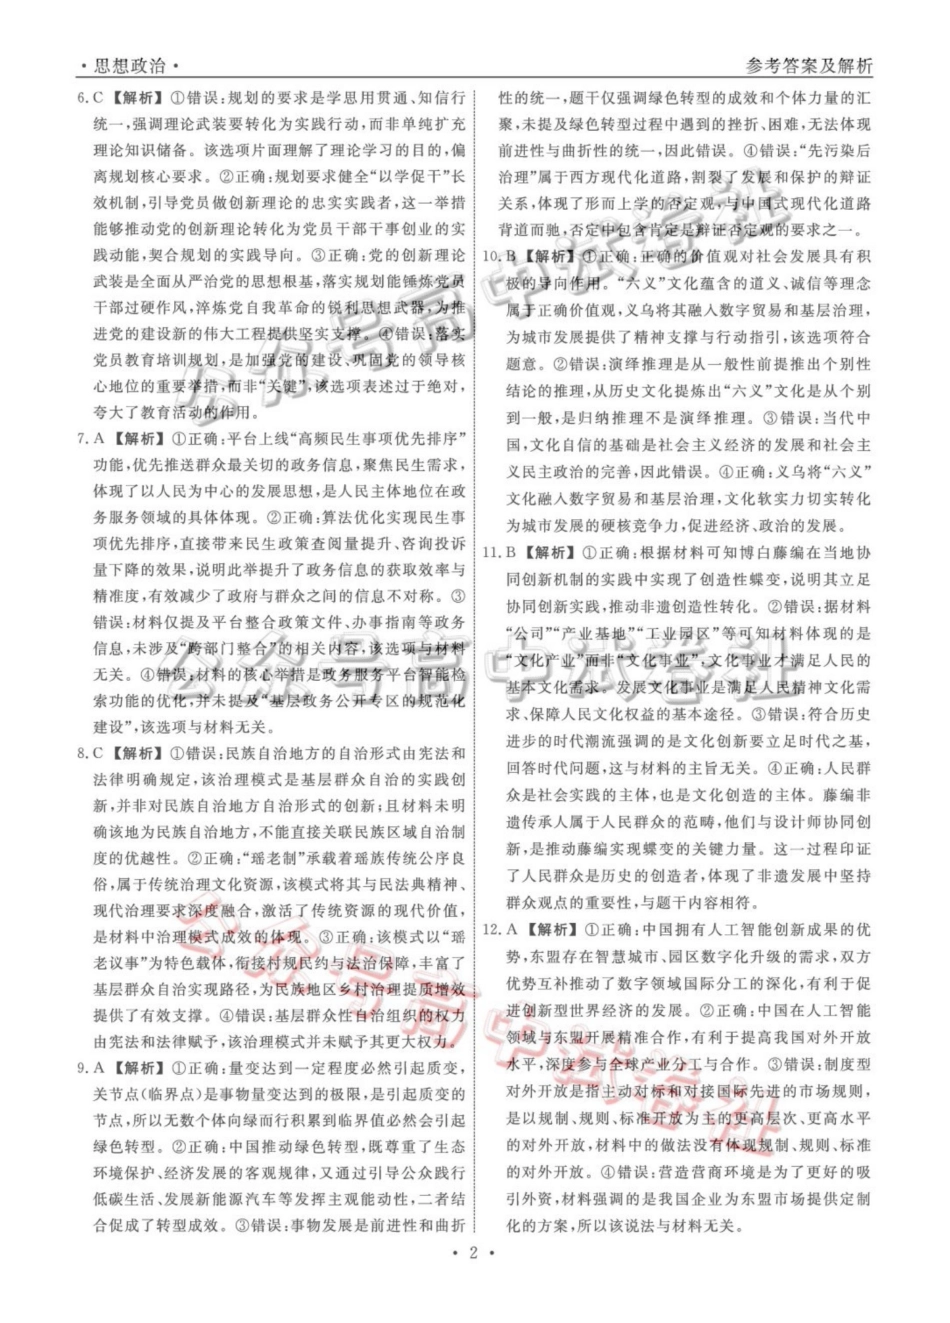 ·思想政治·
参考答案及解析
6.C 【解析】①错误:规划的要求是学思用贯通、知信行
统一,强调理论武装要转化为实践行动,而非单纯扩充
理论知识储备。该选项片面理解了理论学习的目的,偏
离规划核心要求。②正确:规划要求健全“以学促干”长
效机制,引导党员做创新理论的忠实实践者,这一举措
能够推动党的创新理论转化为党员干部干事创业的实
践动能,契合规划的实践导向。③正确:党的创新理论
武装是全面从严治党的思想根基,落实规划能锤炼党员
干部过硬作风,淬炼党自我革命的锐利思想武器,为推
进党的建设新的伟大工程提供坚实支撑。④错误:落实
党员教育培训规划,是加强党的建设、巩固党的领导核
心地位的重要举措,而非“关键”,该选项表述过于绝对,
夸大了教育活动的作用。
7.A 【解析】①正确:平台上线“高频民生事项优先排序”
功能,优先推送群众最关切的政务信息,聚焦民生需求,
体现了以人民为中心的发展思想,是人民主体地位在政
务服务领域的具体体现。②正确:算法优化实现民生事
项优先排序,直接带来民生政策查阅量提升、咨询投诉
量下降的效果,说明此举提升了政务信息的获取效率与
精准度,有效减少了政府与群众之间的信息不对称。③
错误:材料仅提及平台整合政策文件、办事指南等政务
信息,未涉及“跨部门整合”的有关信息,该选项与材料
无关。④错误:材料的核心举措是政务服务平台智能检
索功能的优化,并未提及“基层政务公开专区的规范化
建设”,该选项与材料无关。
8.C 【解析】①错误:民族自治地方的自治形式由宪法和
法律明确规定,该治理模式是基层群众自治的实践创
新,并非对民族自治地方自治形式的创新;且材料未明
确该地为民族自治地方,不能直接关联民族区域自治制
度的优越性。②正确:“瑶老制”承载着瑶族传统公序良
俗,属于传统治理文化资源,该模式将其与民法典精神、
现代治理要求深度融合,激活了传统资源的现代价值,
是材料中治理模式成效的体现。③正确:该模式以“瑶
老议事”为特色载体,衔接村规民约与法治保障,丰富了
基层群众自治实现路径,为民族地区乡村治理提质增效
提供了有效支撑。④错误:基层群众性自治组织的权力
由宪法和法律赋予,该治理模式并未赋予其更大权力。
9.A 【解析】①正确:量变达到一定程度必然引起质变,
关节点(临界点)是事物量变达到的极限,是引起质变的
节点,所以无数个体向绿而行积累到临界值必然会引起
绿色转型。②正确:中国推动绿色转型,既尊重了生态
环境保护、经济发展的客观规律,又通过引导公众践行
低碳生活、发展新能源汽车等发挥主观能动性,二者结
合促成了转型成效。③错误:事物发展是前进性和曲折
性的统一,题干仅强调绿色转型的成效和个体力量的汇
聚,未提及绿色转型过程中遇到的挫折、困难,无法体现
前进性与曲折性的统一,因此错误。④错误:“先污染后
治理”属于西方现代化道路,割裂了发展和保护的辩证
关系,体现了形而上学的否定观,与中国式现代化道路
背道而驰,否定中包含肯定是辩证否定观的要求之一。
10.B 【解析】①正确:正确的价值观对社会发展具有积
极的导向作用。“六义”文化蕴含的道义、诚信等理念
属于正确价值观,义乌将其融入数字贸易和基层治理,
为城市发展提供了精神支撑与行动指引,该选项符合
题意。②错误:演绎推理是从一般性前提推出个别性
结论的推理,从历史文化提炼出“六义”文化是从个别
到一般,是归纳推理不是演绎推理。③错误:当代中
国,文化自信的基础是社会主义经济的发展和社会主
义民主政治的完善,因此错误。④正确:义乌将“六义”
文化融入数字贸易和基层治理,文化软实力切实转化
为城市发展的硬核竞争力,促进经济、政治的发展。
11.B 【解析】①正确:根据材料可知博白藤编在当地协
同创新机制的实践中实现了创造性蝶变,说明其立足
协同创新实践,推动非遗创造性转化。②错误:据材料
“公司”“产业基地”“工业园区”等可知材料体现的是
“文化产业”而非“文化事业”,文化事业才满足人民的
基本文化需求。发展文化事业是满足人民精神文化需
求、保障人民文化权益的基本途径。③错误:符合历史
进步的时代潮流强调的是文化创新要立足时代之基,
回答时代问题,这与材料的主旨无关。④正确:人民群
众是社会实践的主体,也是文化创造的主体。藤编非
遗传承人属于人民群众的范畴,他们与设计师协同创
新,是推动藤编实现蝶变的关键力量。这一过程印证
了人民群众是历史的创造者,体现了非遗发展中坚持
群众观点的重要性,与题干内容相符。
12.A 【解析】①正确:中国拥有人工智能创新成果的优
势,东盟存在智慧城市、园区数字化升级的需求,双方
优势互补推动了数字领域国际分工的深化,有利于促
进创新型世界经济的发展。②正确:中国在人工智能
领域与东盟开展精准合作,有利于提高我国对外开放
水平,深度参与全球产业分工与合作。③错误:制度型
对外开放是指主动对标和对接国际先进的市场规则,
是以规制、规则、标准开放为主的更高层次、更高水平
的对外开放,材料中的做法没有体现规制、规则、标准
的对外开放。④错误:营造营商环境是为了更好的吸
引外资,材料强调的是我国企业为东盟市场提供定制
化的方案,所以该说法与材料无关。
·2·
公众号高中试卷社
公众号高中试卷社
公众号高中试卷社